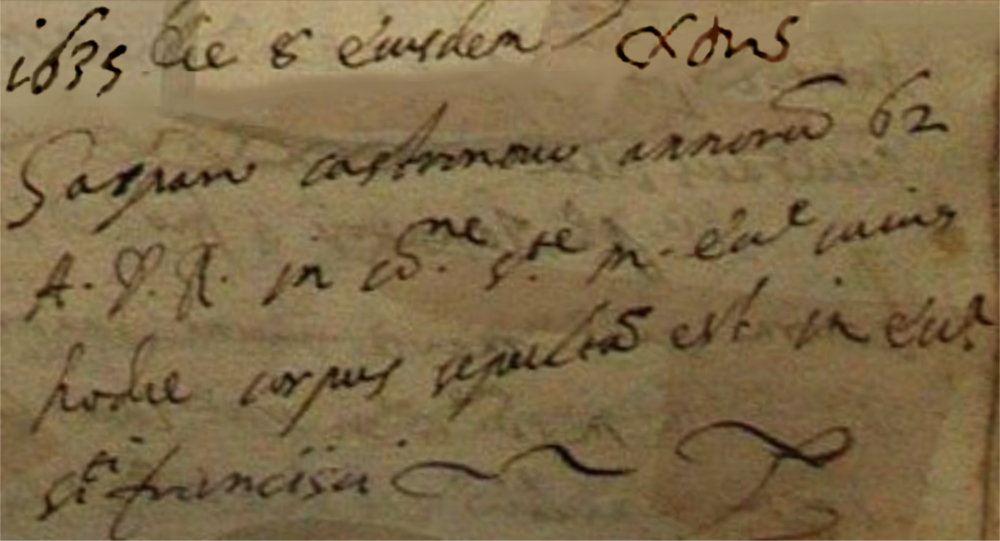 1635 die 8 eiusdem Xbris
Gaspar castronovo annorũ 62
A. D. R. in cõ.ne S.te m. eccl.e cuius
hodie corpus sepultũ est in eccl.a
S.ti francisci